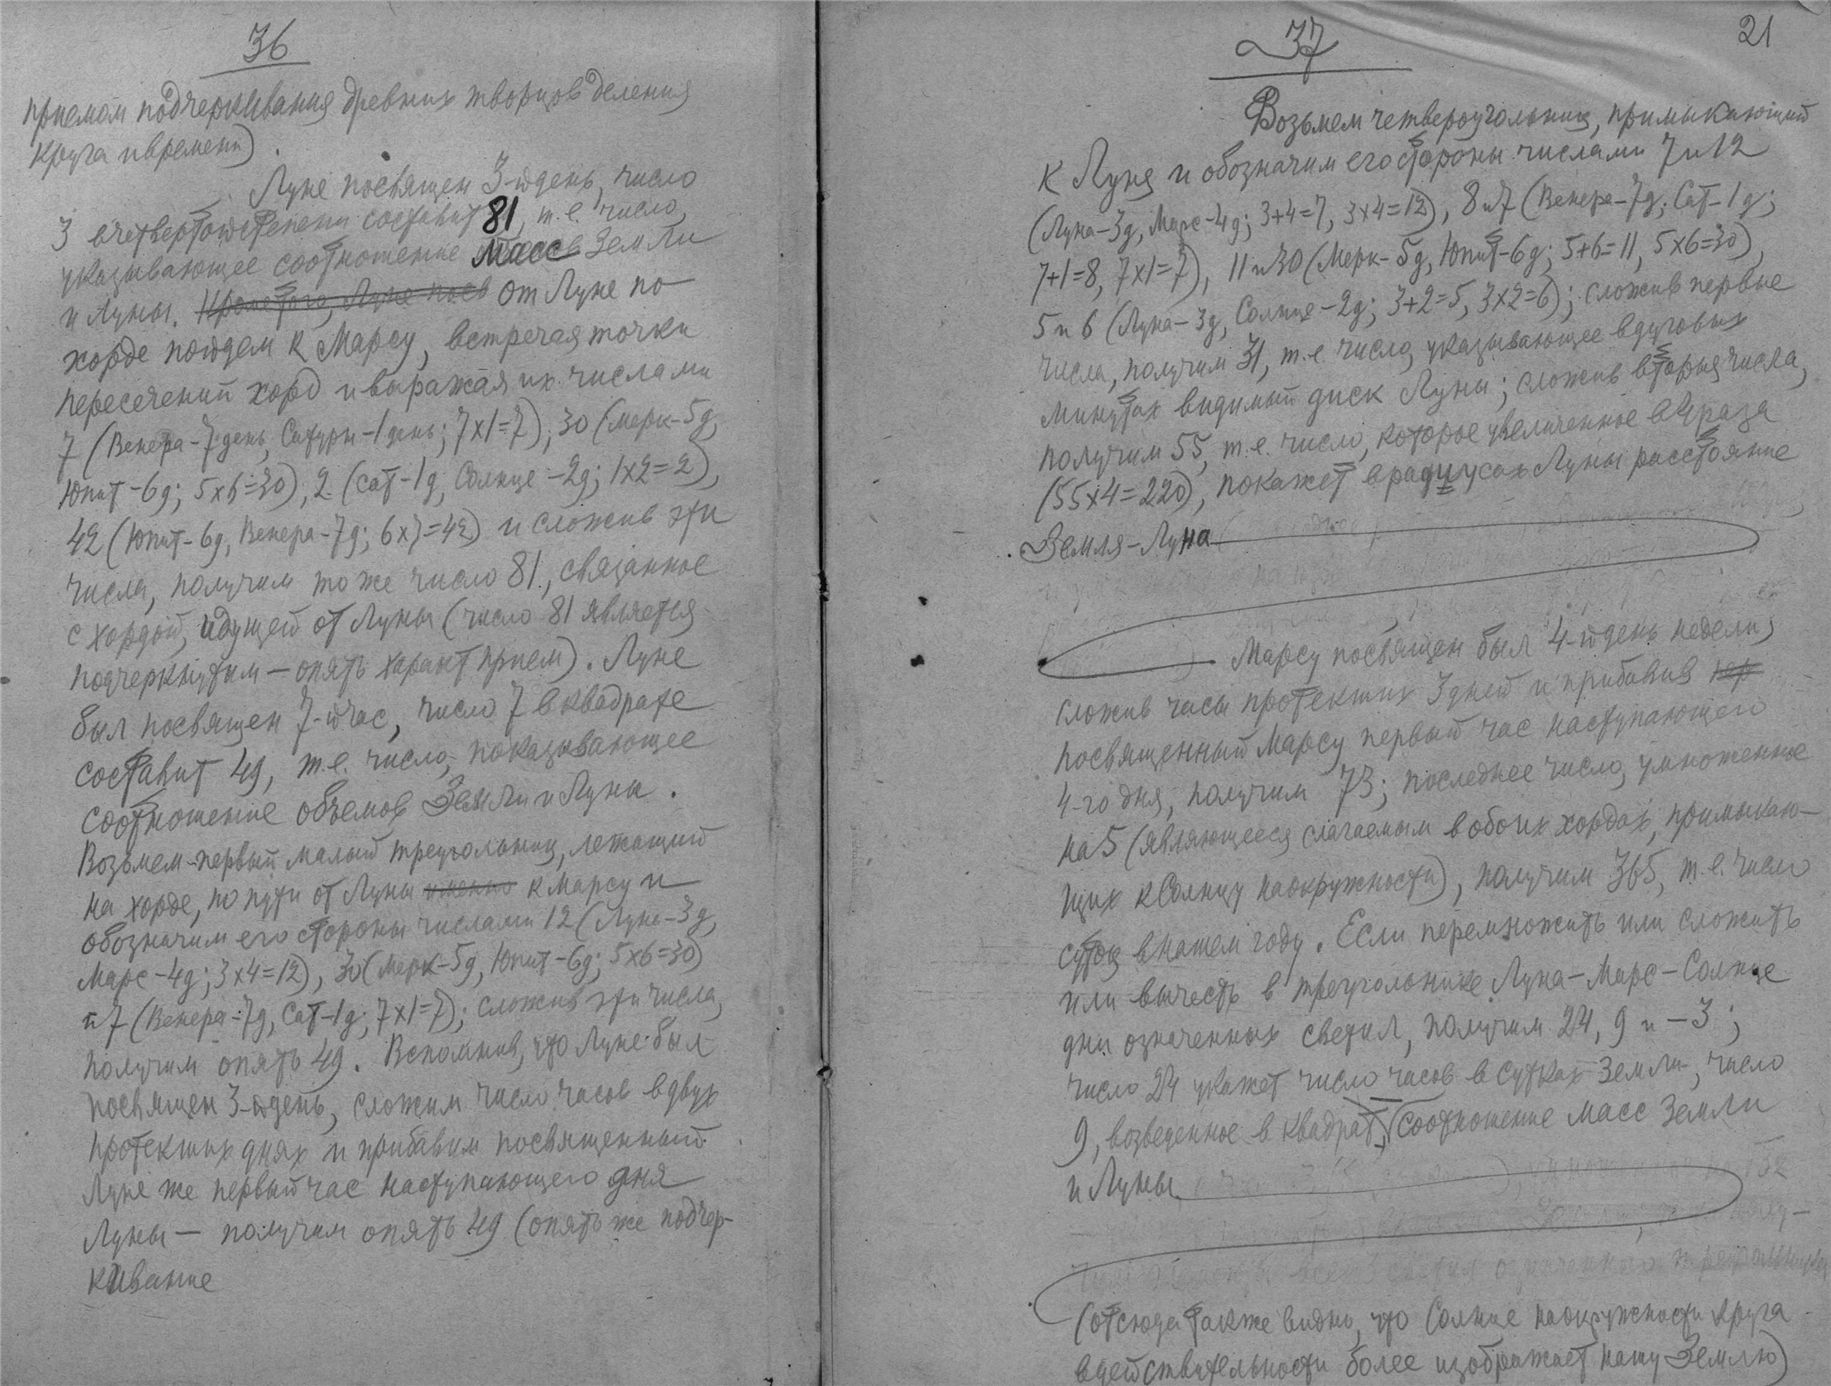 36
приемом подчеркивания древних творцов деления
круга и времени).
Луне посвящен 3-й день, число
3 в четвертой степени составит 81, т.е. число,
указывающее соотношение масс Земли
и Луны. Кроме того, Луне посв От Луне по
хорде пойдем к Марсу, встречая точки
пересечений хорд и выражая их числами
7 (Венера-7 день, Сатурн-1 день; 7х1=7), 30 (Мерк-5д,
Юпит-6д; 5х6=30), 2 (Сат-1д, Солнце-2д; 1х2=2),
42 (Юпит-6д, Венера-7д; 6х7=42) и сложив эти
числа, получим то же число 81, связанное
с хордой, идущей от Луны (число 81 является
подчеркнутым – опять характ прием). Луне
был посвящен 7-й час, число 7 в квадрате
составит 49, т.е. число, показывающее
соотношение объемов Земли и Луны.
Возьмем первый малый треугольник, лежащий
на хорде, по пути от Луны к Марсу и
обозначим его стороны числами 12 (Луна-3д,
Марс-4д; 3х4=12), 30 (Мерк-5д, Юпит-6д; 5х6=30)
и 7 (Венера-7д, Сат-1д; 7х1=7); сложив эти числа,
получим опять 49. Вспомнив, что Луне был
посвящен 3-й день, сложим число часов в двух
протекших днях и прибавим посвященный
Луне же первый час наступающего дня
Луны – получим опять 49 (опять же подчер-
кивание
37
21
Возьмем четвероугольник, примыкающий
к Луне и обозначим его стороны числами 7 и 12
(Луна-3д, Марс-4д; 3+4=7, 3х4=12), 8 и 7 (Венера-7д; Сат-1д;
7+1=8, 7х1=7), 11 и 30 (Мерк-5д, Юпит-6д; 5+6=11, 5х6=30),
5 и 6 (Луна-3д, Солнце-2д; 3+2=5, 3х2=6); сложив первые
числа, получим 31, т.е. число, указывающее в дуговых
минутах видимый диск Луны; сложив вторые числа,
получим 55, т.е. число, которое увеличенное в 4 раза
(55х4=220), покажет в радиусах Луны расстояние
Земля-Луна
Марсу посвящен был 4-й день недели;
сложив часы протекших 3 дней и прибавив пер
посвященный Марсу первый час наступающего
4-го дня, получим 73; последнее число, умноженное
на 5 (являющееся слагаемым в обоих хордах, примыкаю-
щих к Солнцу на окружности), получим 365, т.е. число
суток в нашем году. Если перемножить или сложить
или вычесть в треугольнике Луна-Марс-Солнце
дни означенных светил, получим 24, 9 и -3;
число 24 укажет число часов в сутках Земли, число
9, возведенное в квадрат, соотношение масс Земли
и Луны
(отсюда также видно, что Солнце на окружности круга
в действительности более изображает нашу Землю)